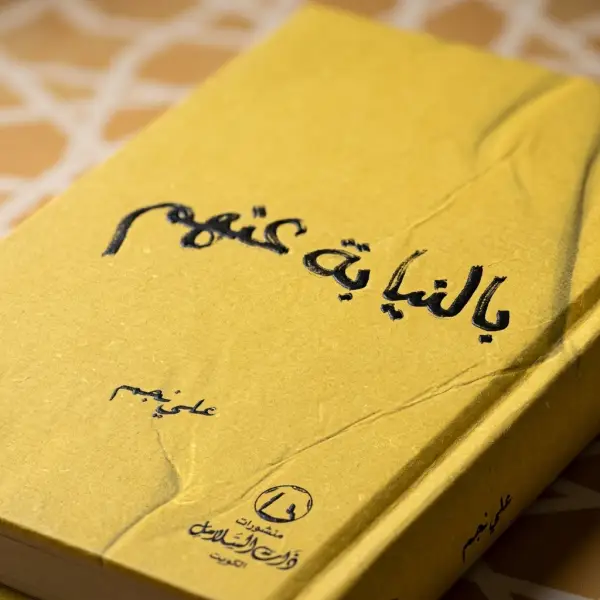 بالنيابة عنهم
علي نجم
منشورات
ذات السلاسل
الكويت
علي نجم